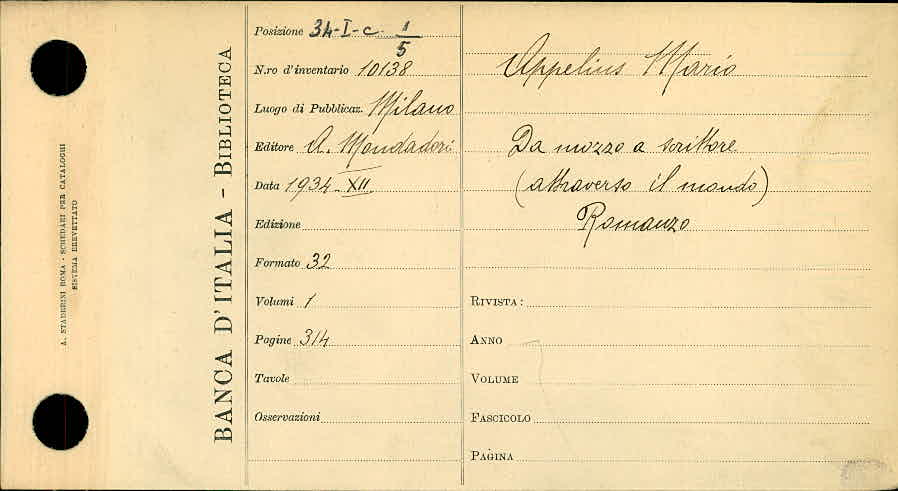 A. STADERINI ROMA - SCHEDARI PER CATALOGHI
SISTEMA BREVETTATO
BANCA D'ITALIA - BIBLIOTECA
Posizione 34-I-c 1/5
N.ro d'inventario 10138
Luogo di Pubblicaz. Milano
Editore A. Mondadori
Data 1934-XII
Edizione
Formato 32
Volumi 1
Pagine 314
Tavole
Osservazioni
Appelius Mario
Da mozzo a scrittore
(attraverso il mondo)
Romanzo
RIVISTA:
ANNO
VOLUME
FASCICOLO
PAGINA